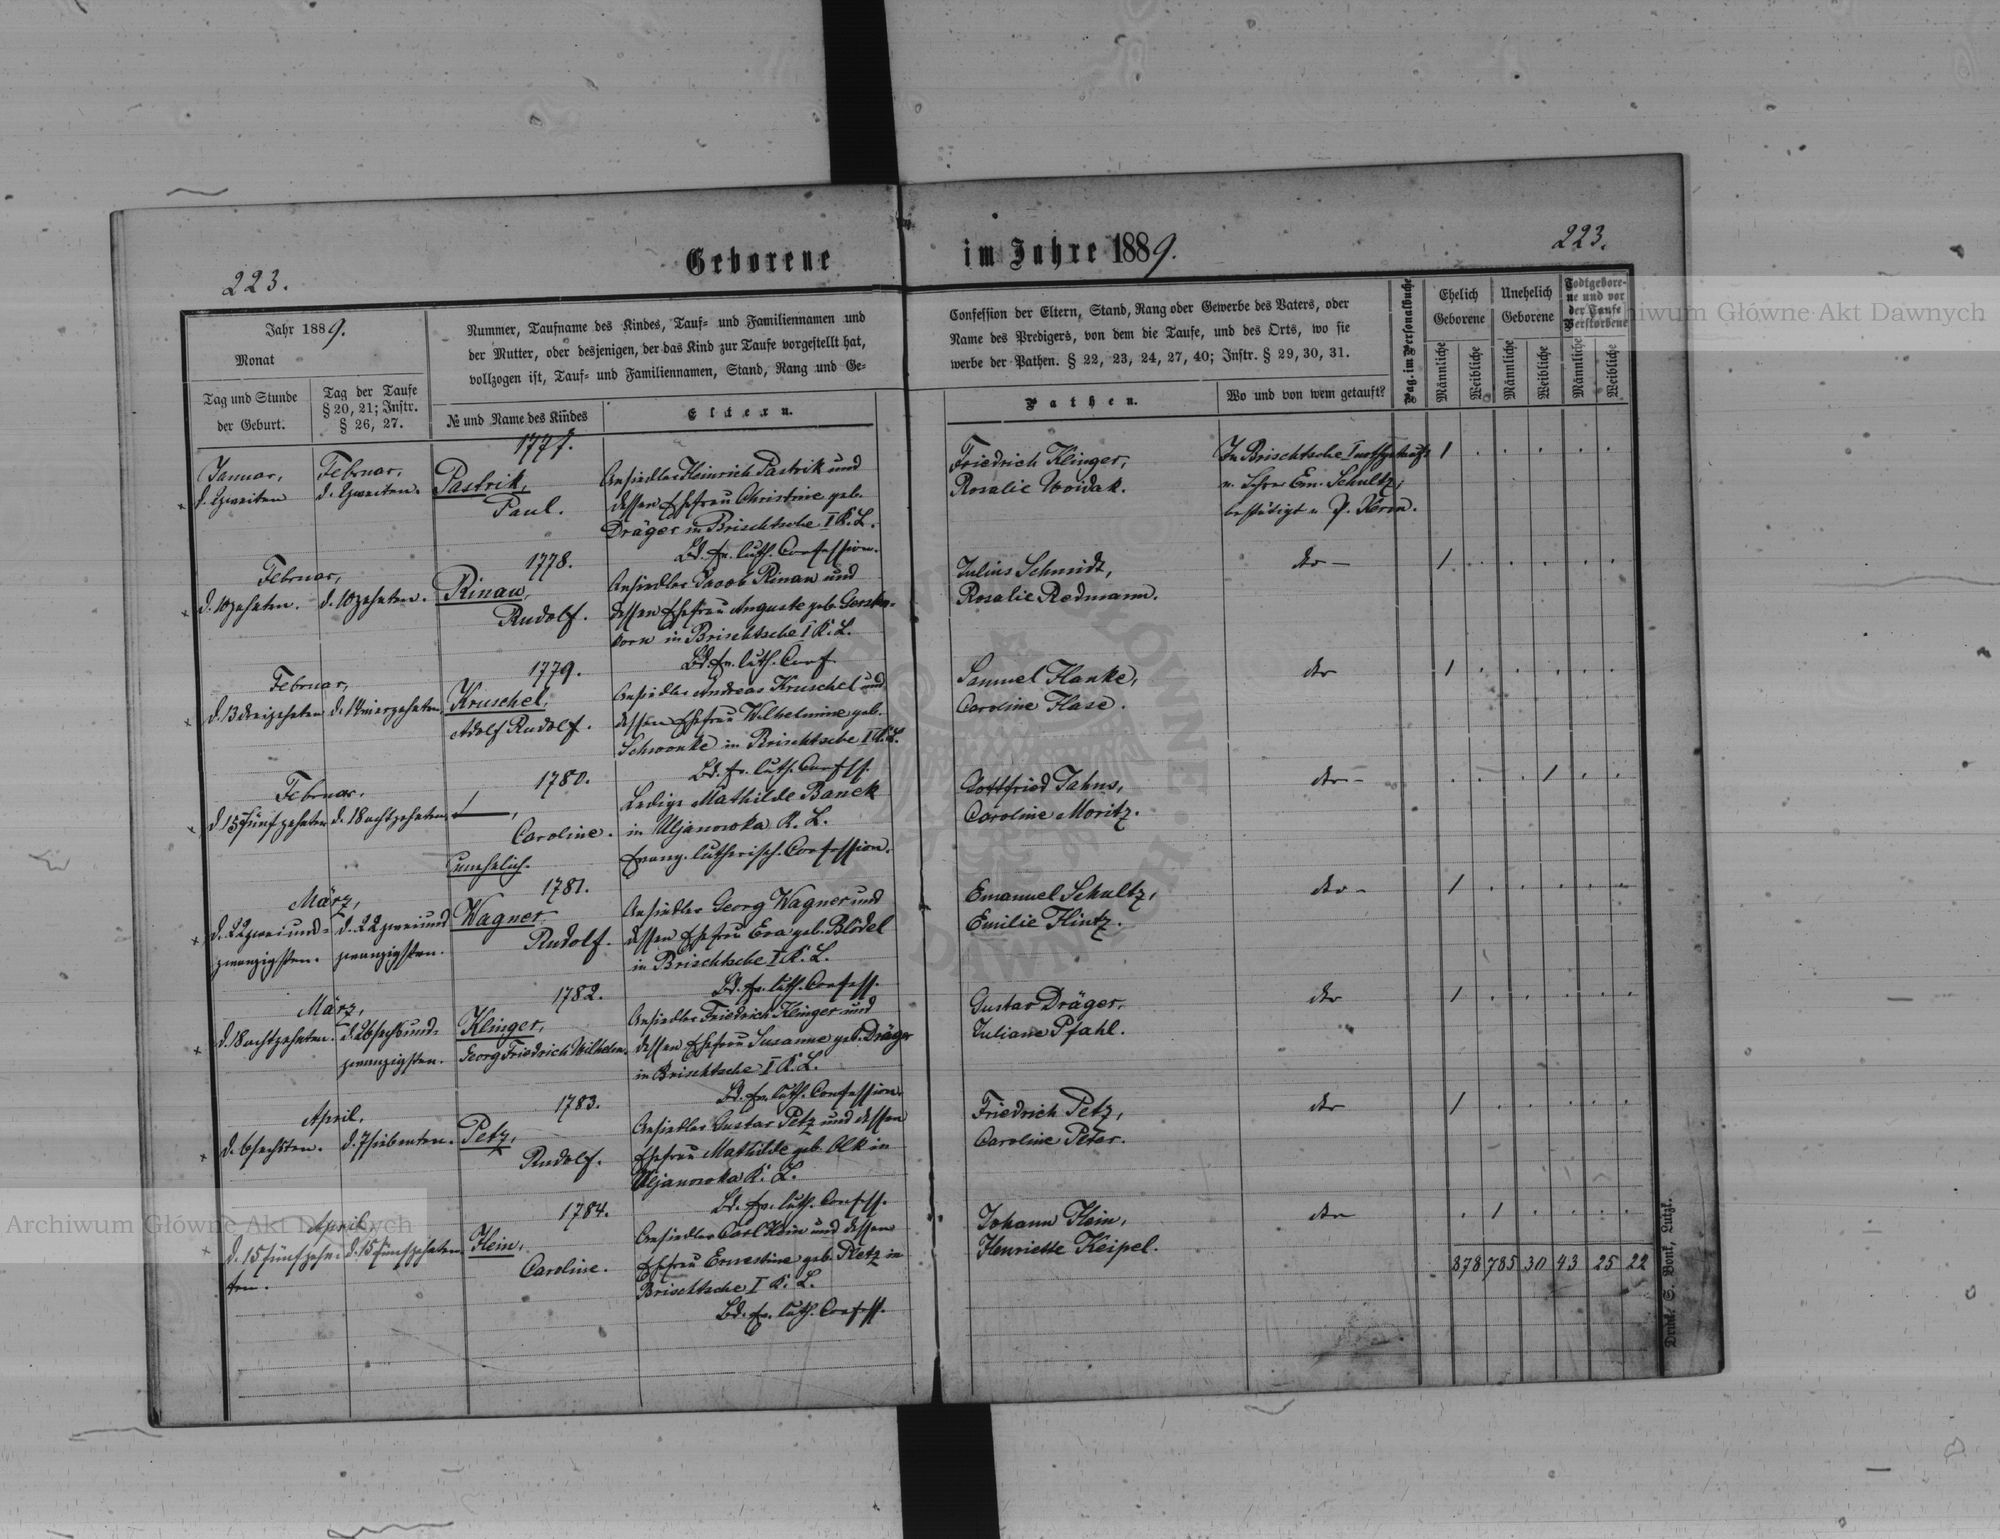 223.
Geborene
im Jahre 1889.
223.
Jahr 1889.
Monat
Tag und Stunde
der Geburt.
Tag der Taufe
§ 20, 21; Instr.
§ 26, 27.
Nummer, Taufname des Kindes, Tauf- und Familiennamen und
der Mutter, oder desjenigen, der das Kind zur Taufe vorgestellt hat,
vollzogen ist, Tauf- und Familiennamen, Stand, Rang und Ge-
№ und Name des Kindes
Eltern.
Confession der Eltern, Stand, Rang oder Gewerbe des Vaters, oder
Name des Predigers, von dem die Taufe, und des Orts, wo sie
werbe der Pathen. § 22, 23, 24, 27, 40; Instr. § 29, 30, 31.
Pathen.
Wo und von wem getauft?
Pag. im Personalbuche
Ehelich
Geborene
Unehelich
Geborene
Todtgebore-
ne und vor
der Taufe
Verstorbene
Männliche
Weibliche
Männliche
Weibliche
Männliche
Weibliche
1777.
Januar,
d. 2 zweiten
Februar,
d. 2 zweiten.
Pastrik,
Paul.
Ansiedler Heinrich Pastrik und
dessen Ehefrau Christine geb.
Dräger in Brischtsche I K. L.
Bd. Ev. luth. Confession.
Friedrich Klinger,
Rosalie Woidak.
In Brischtsche I nothgetauft
v. Lehrer Em. Schultz,
bestätigt v. P. Kern.
1
1778.
Februar,
d. 10 zehnten.
d. 10 zehnten.
Rinau,
Rudolf.
Ansiedler Jacob Rinau und
dessen Ehefrau Auguste geb. Gersten-
korn in Brischtsche I K. L.
Bd. Ev. luth. Conf.
Julius Schmidt,
Rosalie Redmann.
dto -
1
1779.
Februar,
d. 13 dreizehnten
d. 14 vierzehnten
Kruschel,
Adolf Rudolf.
Ansiedler Andreas Kruschel und
dessen Ehefrau Wilhelmine geb.
Schwanke in Brischtsche I K. L.
Bd. Ev. luth. Confess.
Samuel Hanke,
Caroline Hase.
dto
1
1780.
Februar,
d. 15 fünfzehnten
d. 18 achtzehnten
Caroline.
unehelich.
Ledige Mathilde Banek
in Uljanowka K. L.
Evang. lutherisch. Confession.
Gottfried Jahns,
Caroline Moritz.
dto -
1
1781.
März,
d. 22 zwei und-
zwanzigsten.
d. 22 zwei und
zwanzigsten.
Wagner
Rudolf.
Ansiedler Georg Wagner und
dessen Ehefrau Eva geb. Blödel
in Brischtsche I K. L.
Bd. Ev. luth. Confess.
Emanuel Schultz,
Emilie Hintz.
dto -
1
1782.
März,
d. 18 achtzehnten.
d. 26 sechs und-
zwanzigsten.
Klinger,
Georg Friedrich Wilhelm.
Ansiedler Friedrich Klinger und
dessen Ehefrau Susanne geb. Dräger
in Brischtsche I K. L.
Bd. Ev. luth. Confession.
Gustav Dräger,
Juliane Pfahl.
dto
1
1783.
April,
d. 6 sechsten.
d. 7 siebenten.
Petz,
Rudolf.
Ansiedler Gustav Petz und dessen
Ehefrau Mathilde geb. Olk in
Uljanowka K. L.
Bd. Ev. luth. Confess.
Friedrich Petz,
Caroline Peter.
dto
1
1784.
April,
d. 15 fünfzehn-
ten.
d. 15 fünfzehnten
Hein,
Caroline.
Ansiedler Carl Hein und dessen
Ehefrau Ernestine geb. Pletz in
Brischtsche I K. L.
Bd. Ev. luth. Confess.
Johann Hein,
Henriette Keipel.
dto
1
878 785 30 43 25 22
Druck S. Bonk, Lutzk.
Archiwum Główne Akt Dawnych
Archiwum Główne Akt Dawnych